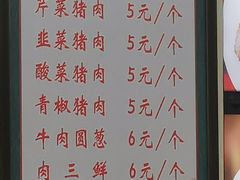 芹菜猪肉 5元/个
韭菜猪肉 5元/个
酸菜猪肉 5元/个
青椒猪肉 5元/个
牛肉圆葱 6元/个
肉三鲜 6元/个